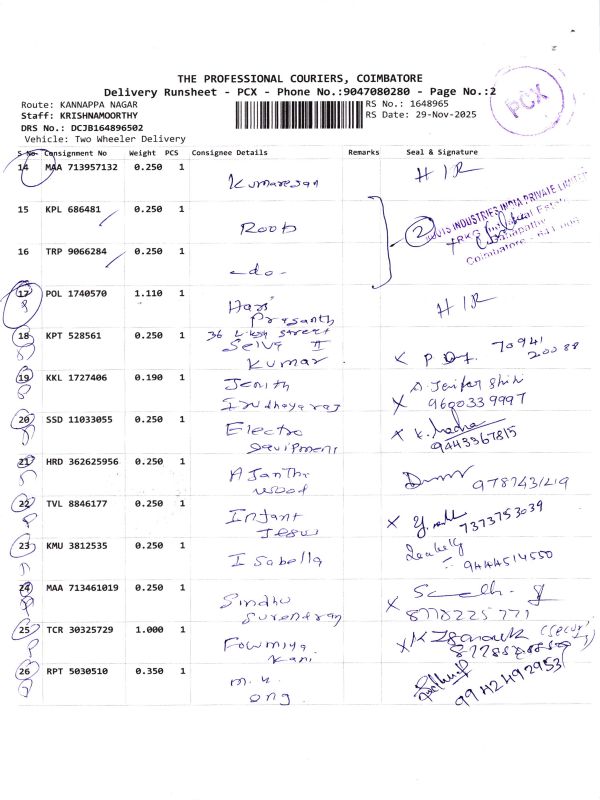 THE PROFESSIONAL COURIERS, COIMBATORE
Delivery Runsheet - PCX - Phone No.:9047080280 - Page No.:2
Route: KANNAPPA NAGAR
RS No.: 1648965
Staff: KRISHNAMOORTHY
RS Date: 29-Nov-2025
DRS No.: DCJB164896502
Vehicle: Two Wheeler Delivery
PCX
S No Consignment No Weight PCS Consignee Details Remarks Seal & Signature
14 MAA 713957132 0.250 1 Kumaresan HIR
15 KPL 686481 0.250 1 Roots
2
INDUSTRIES INDIA PRIVATE LIMITED
Coimbatore
16 TRP 9066284 0.250 1 -do-
17 POL 1740570 1.110 1 Hari HIR
Prasanth
36 street
18 KPT 528561 0.250 1 Selva II 70941
Kumar 20088
19 KKL 1727406 0.190 1 Jenith
Irudhayaraj 9600339997
20 SSD 11033055 0.250 1 Electro
Equipment 9443367815
21 HRD 362625956 0.250 1 Ajantha
wood
22 TVL 8846177 0.250 1 Infant
Jesus 7373753039
23 KMU 3812535 0.250 1 Isabella
9444514550
24 MAA 713461019 0.250 1 Sindhu
Surendran 8778225771
25 TCR 30325729 1.000 1 Fowmiya
Kani
26 RPT 5030510 0.350 1 m.k
ong 9942492953